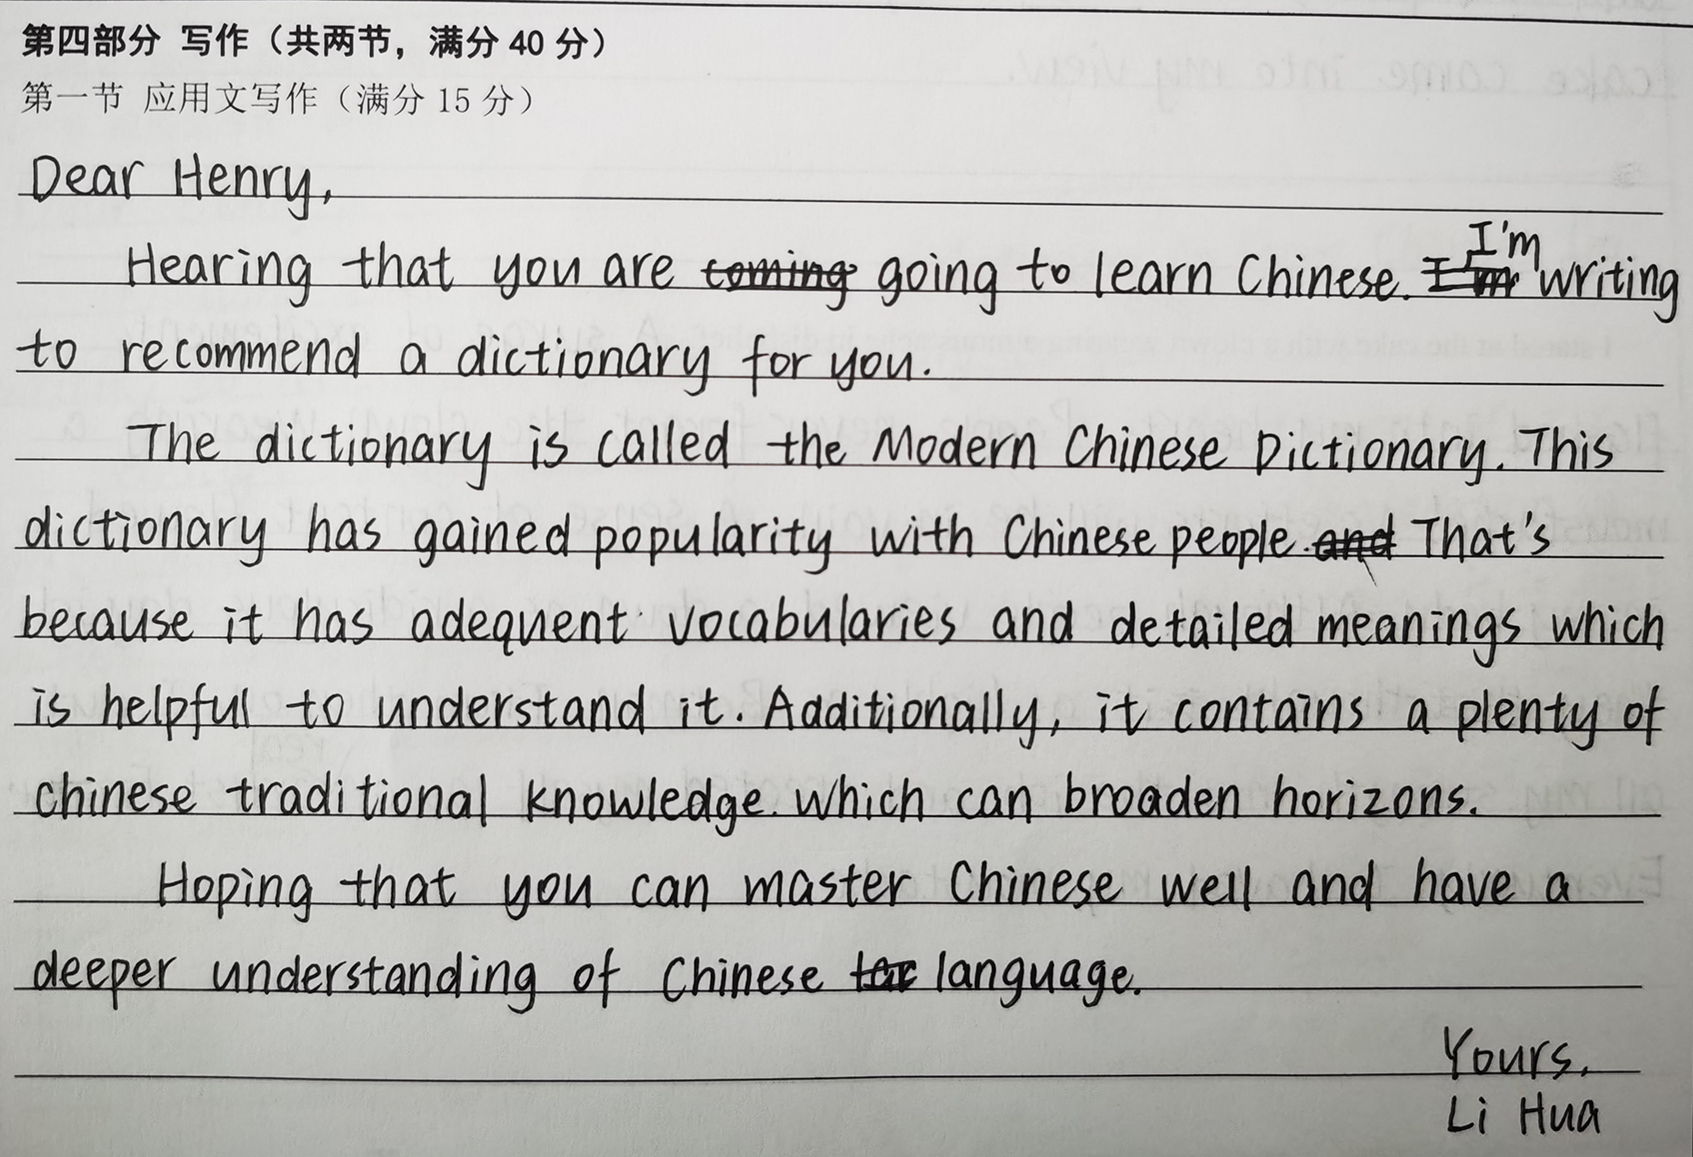 第四部分 写作（共两节，满分 40 分）
第一节 应用文写作（满分 15 分）
Dear Henry,
Hearing that you are coming going to learn Chinese. I'm I'm writing
to recommend a dictionary for you.
The dictionary is called the Modern Chinese Dictionary. This
dictionary has gained popularity with Chinese people. and That's
because it has adequent vocabularies and detailed meanings which
is helpful to understand it. Additionally, it contains a plenty of
chinese traditional knowledge. which can broaden horizons.
Hoping that you can master Chinese well and have a
deeper understanding of Chinese language.
Yours,
Li Hua